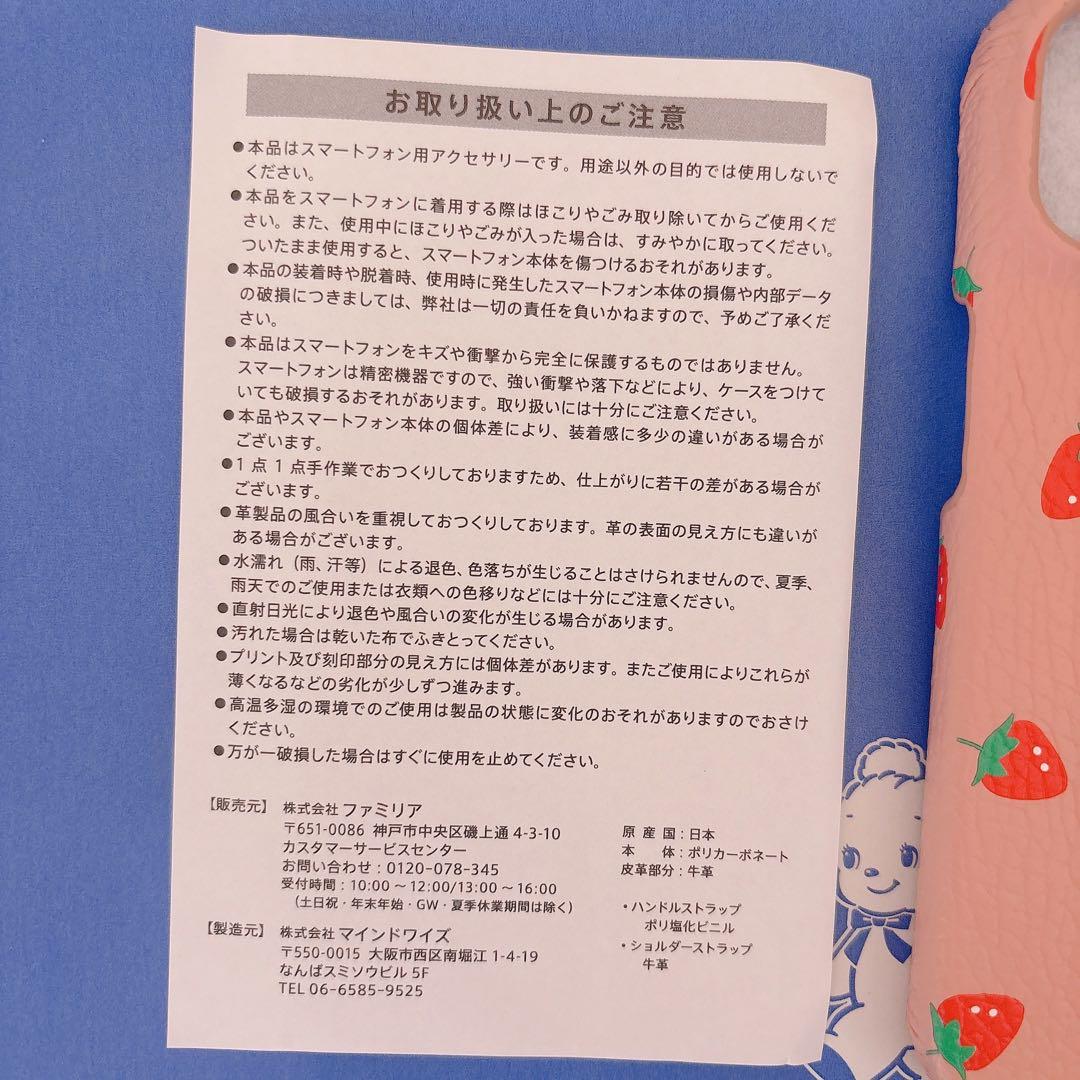 お取り扱い上のご注意
●本品はスマートフォン用アクセサリーです。用途以外の目的では使用しないで
ください。
●本品をスマートフォンに着用する際はほこりやごみ取り除いてからご使用くだ
さい。また、使用中にほこりやごみが入った場合は、すみやかに取ってください。
ついたまま使用すると、スマートフォン本体を傷つけるおそれがあります。
●本品の装着時や脱着時、使用時に発生したスマートフォン本体の損傷や内部データ
の破損につきましては、弊社は一切の責任を負いかねますので、予めご了承くだ
さい。
●本品はスマートフォンをキズや衝撃から完全に保護するものではありません。
スマートフォンは精密機器ですので、強い衝撃や落下などにより、ケースをつけて
いても破損するおそれがあります。取り扱いには十分にご注意ください。
●本品やスマートフォン本体の個体差により、装着感に多少の違いがある場合が
ございます。
●1点1点手作業でおつくりしておりますため、仕上がりに若干の差がある場合が
ございます。
●革製品の風合いを重視しておつくりしております。革の表面の見え方にも違いが
ある場合がございます。
●水濡れ（雨、汗等）による退色、色落ちが生じることはさけられませんので、夏季、
雨天でのご使用または衣類への色移りなどには十分にご注意ください。
●直射日光により退色や風合いの変化が生じる場合があります。
●汚れた場合は乾いた布でふきとってください。
●プリント及び刻印部分の見え方には個体差があります。またご使用によりこれらが
薄くなるなどの劣化が少しずつ進みます。
●高温多湿の環境でのご使用は製品の状態に変化のおそれがありますのでおさけ
ください。
●万が一破損した場合はすぐに使用を止めてください。
【販売元】 株式会社 ファミリア
〒651-0086 神戸市中央区磯上通 4-3-10
カスタマーサービスセンター
お問い合わせ：0120-078-345
受付時間：10:00 ～ 12:00/13:00 ～ 16:00
（土日祝・年末年始・GW・夏季休業期間は除く）
【製造元】 株式会社 マインドワイズ
〒550-0015 大阪市西区南堀江 1-4-19
なんばスミソウビル 5F
TEL 06-6585-9525
原 産 国：日本
本 体：ポリカーボネート
皮革部分：牛革
・ハンドルストラップ
ポリ塩化ビニル
・ショルダーストラップ
牛革